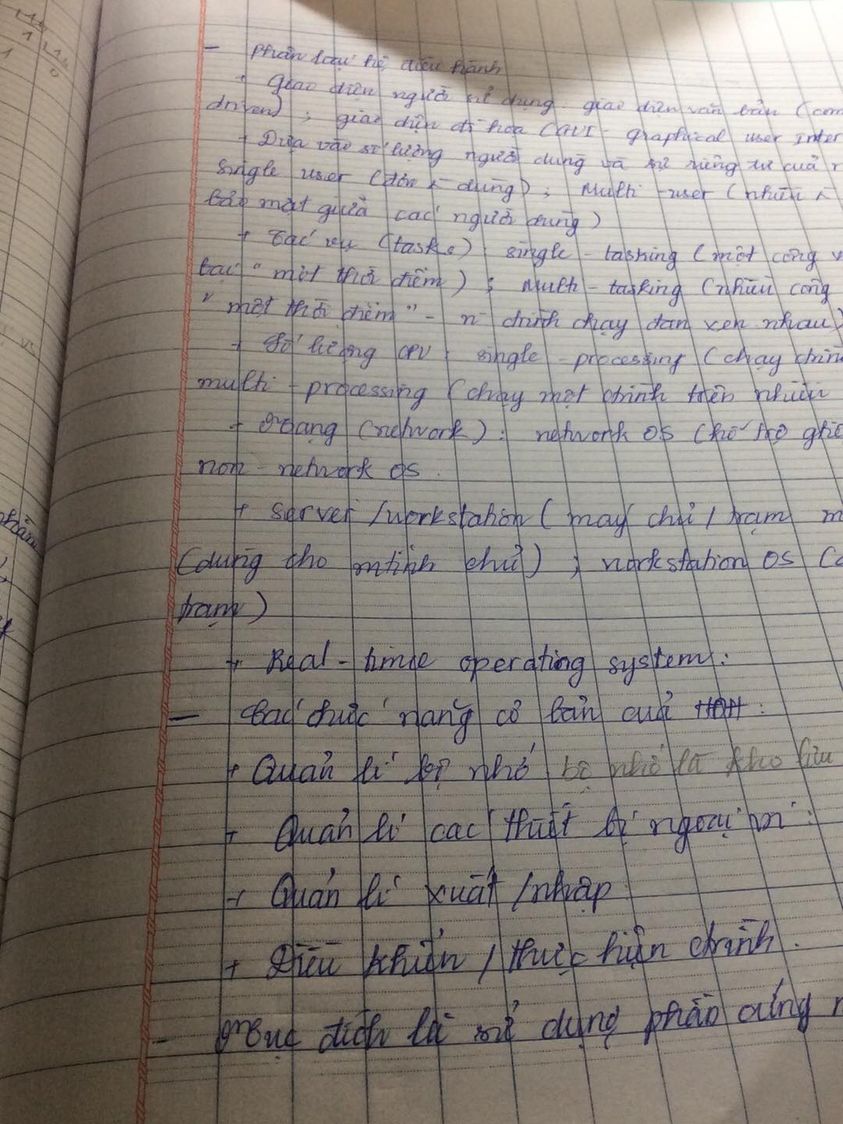 - Phân loại hệ điều hành
+ Giao diện người sử dụng: giao diện văn bản (com
driven); giao diện đồ họa (GUI - graphical user inter
+ Dựa vào số lượng người dùng và sự riêng tư của
single user (đơn dùng); Multi-user (nhiều
bảo mật giữa các người dùng)
+ Tác vụ (tasks): single-tasking (một công v
tại "một thời điểm"); Multi-tasking (nhiều công
"một thời điểm" - n chính chạy đan xen nhau)
+ Số lượng CPU: single-processing (chạy
multi-processing (chạy một trình trên nhiều
+ Mạng (network): network OS (hỗ trợ
non-network OS.
+ server/workstation (máy chủ/trạm m
(dùng cho mtính chủ); workstation OS (
trạm)
+ Real-time operating system:
- Các chức năng cơ bản của HĐH:
+ Quản lí bộ nhớ bộ nhớ là kho lưu
+ Quản lí các thiết bị ngoại vi:
+ Quản lí xuất/nhập
+ Điều khiển/thực hiện trình.
- Mục đích là sử dụng phần cứng